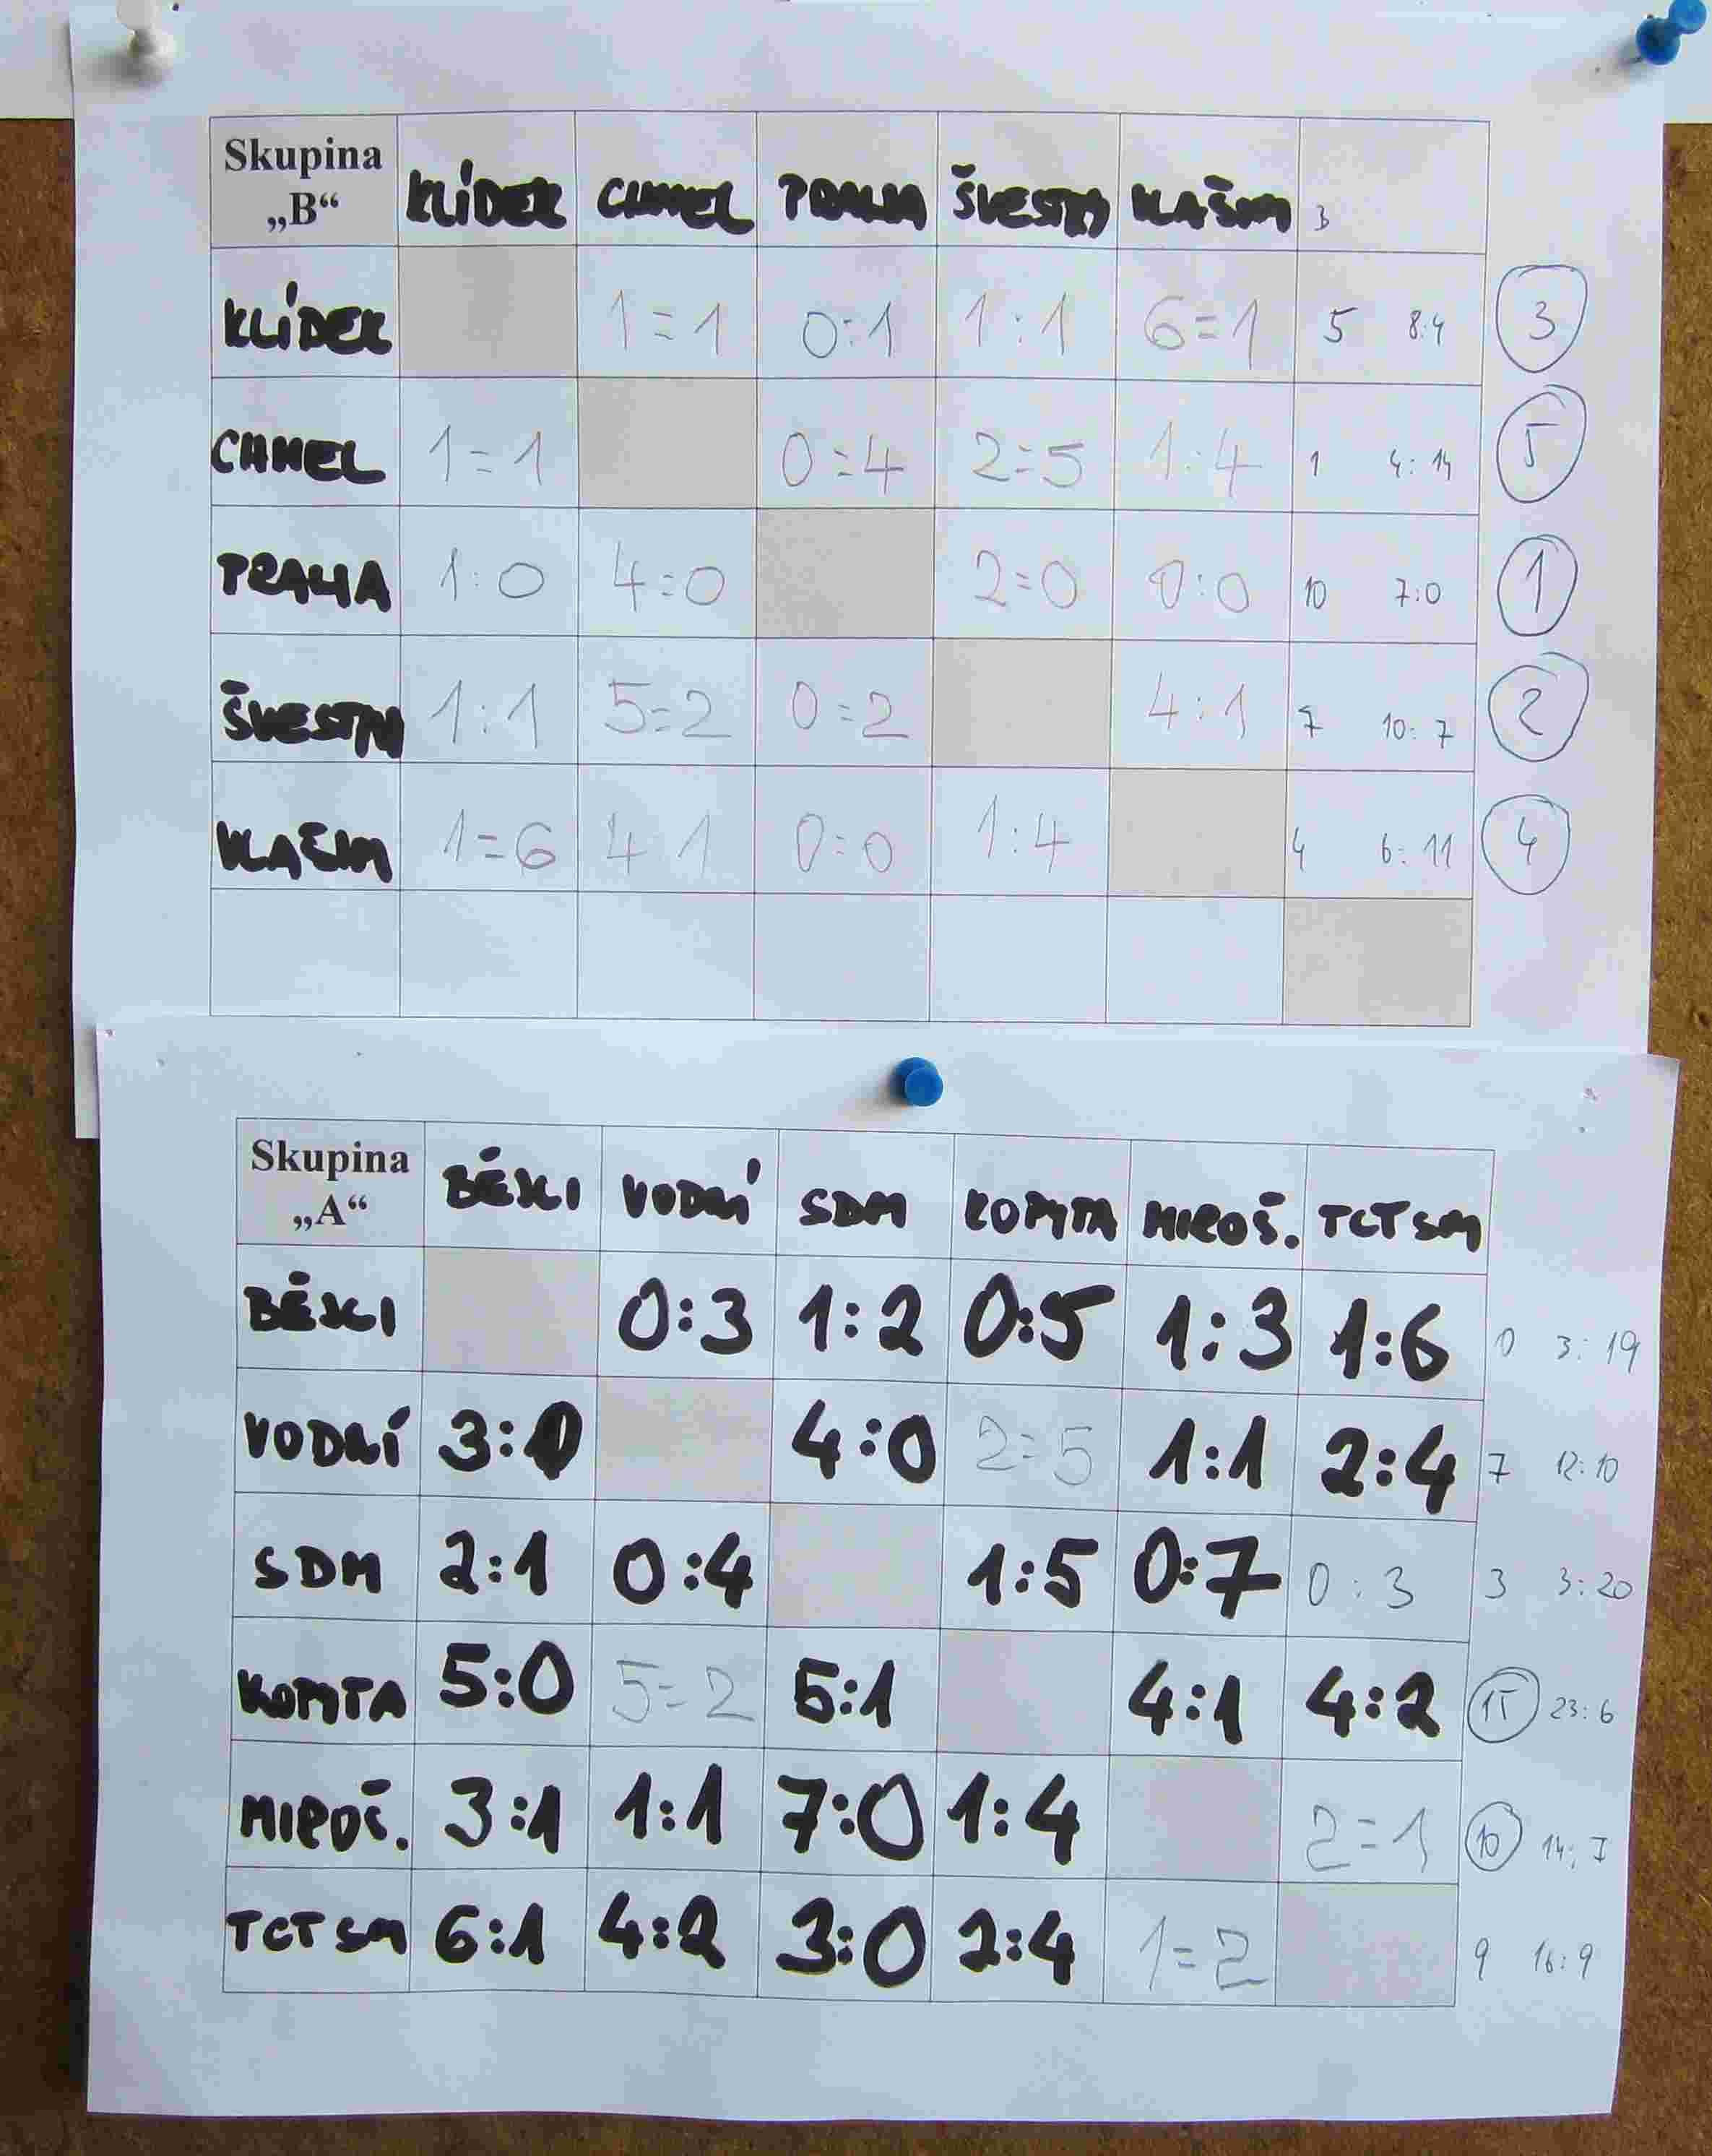 Skupina „B“ KLÍDEK CHMEL PRAHA ŠVESTKY VLAŠIM 3
KLÍDEK 1=1 0:1 1:1 6=1 5 8:4 3
CHMEL 1=1 0=4 2=5 1:4 1 4:14 5
PRAHA 1:0 4=0 2=0 0:0 10 7:0 1
1:1 5=2 0=2 4:1 7 10:7 2
VLAŠIM 1=6 4 1 0=0 1:4 4 6:11 4
Skupina „A“ VODNÍ SDM KOMTA MIROŠ. TCT SM
0:3 1:2 0:5 1:3 1:6 0 3:19
VODNÍ 3:0 4:0 2=5 1:1 2:4 7 12:10
SDM 2:1 0:4 1:5 0:7 0:3 3 3:20
KOMTA 5:0 5=2 5:1 4:1 4:2 15 23:6
MIROŠ. 3:1 1:1 7:0 1:4 2=1 10 14:7
TCT SM 6:1 4:2 3:0 2:4 1=2 9 16:9